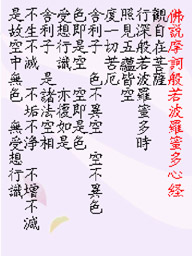 佛說摩訶般若波羅蜜多心經
觀自在菩薩
行深般若波羅蜜多時
照見五蘊皆空
度一切苦厄
舍利子 色不異空 空不異色
色即是空 空即是色
受想行識 亦復如是
舍利子 是諸法空相
不生不滅 不垢不淨 不增不減
是故空中無色 無受想行識